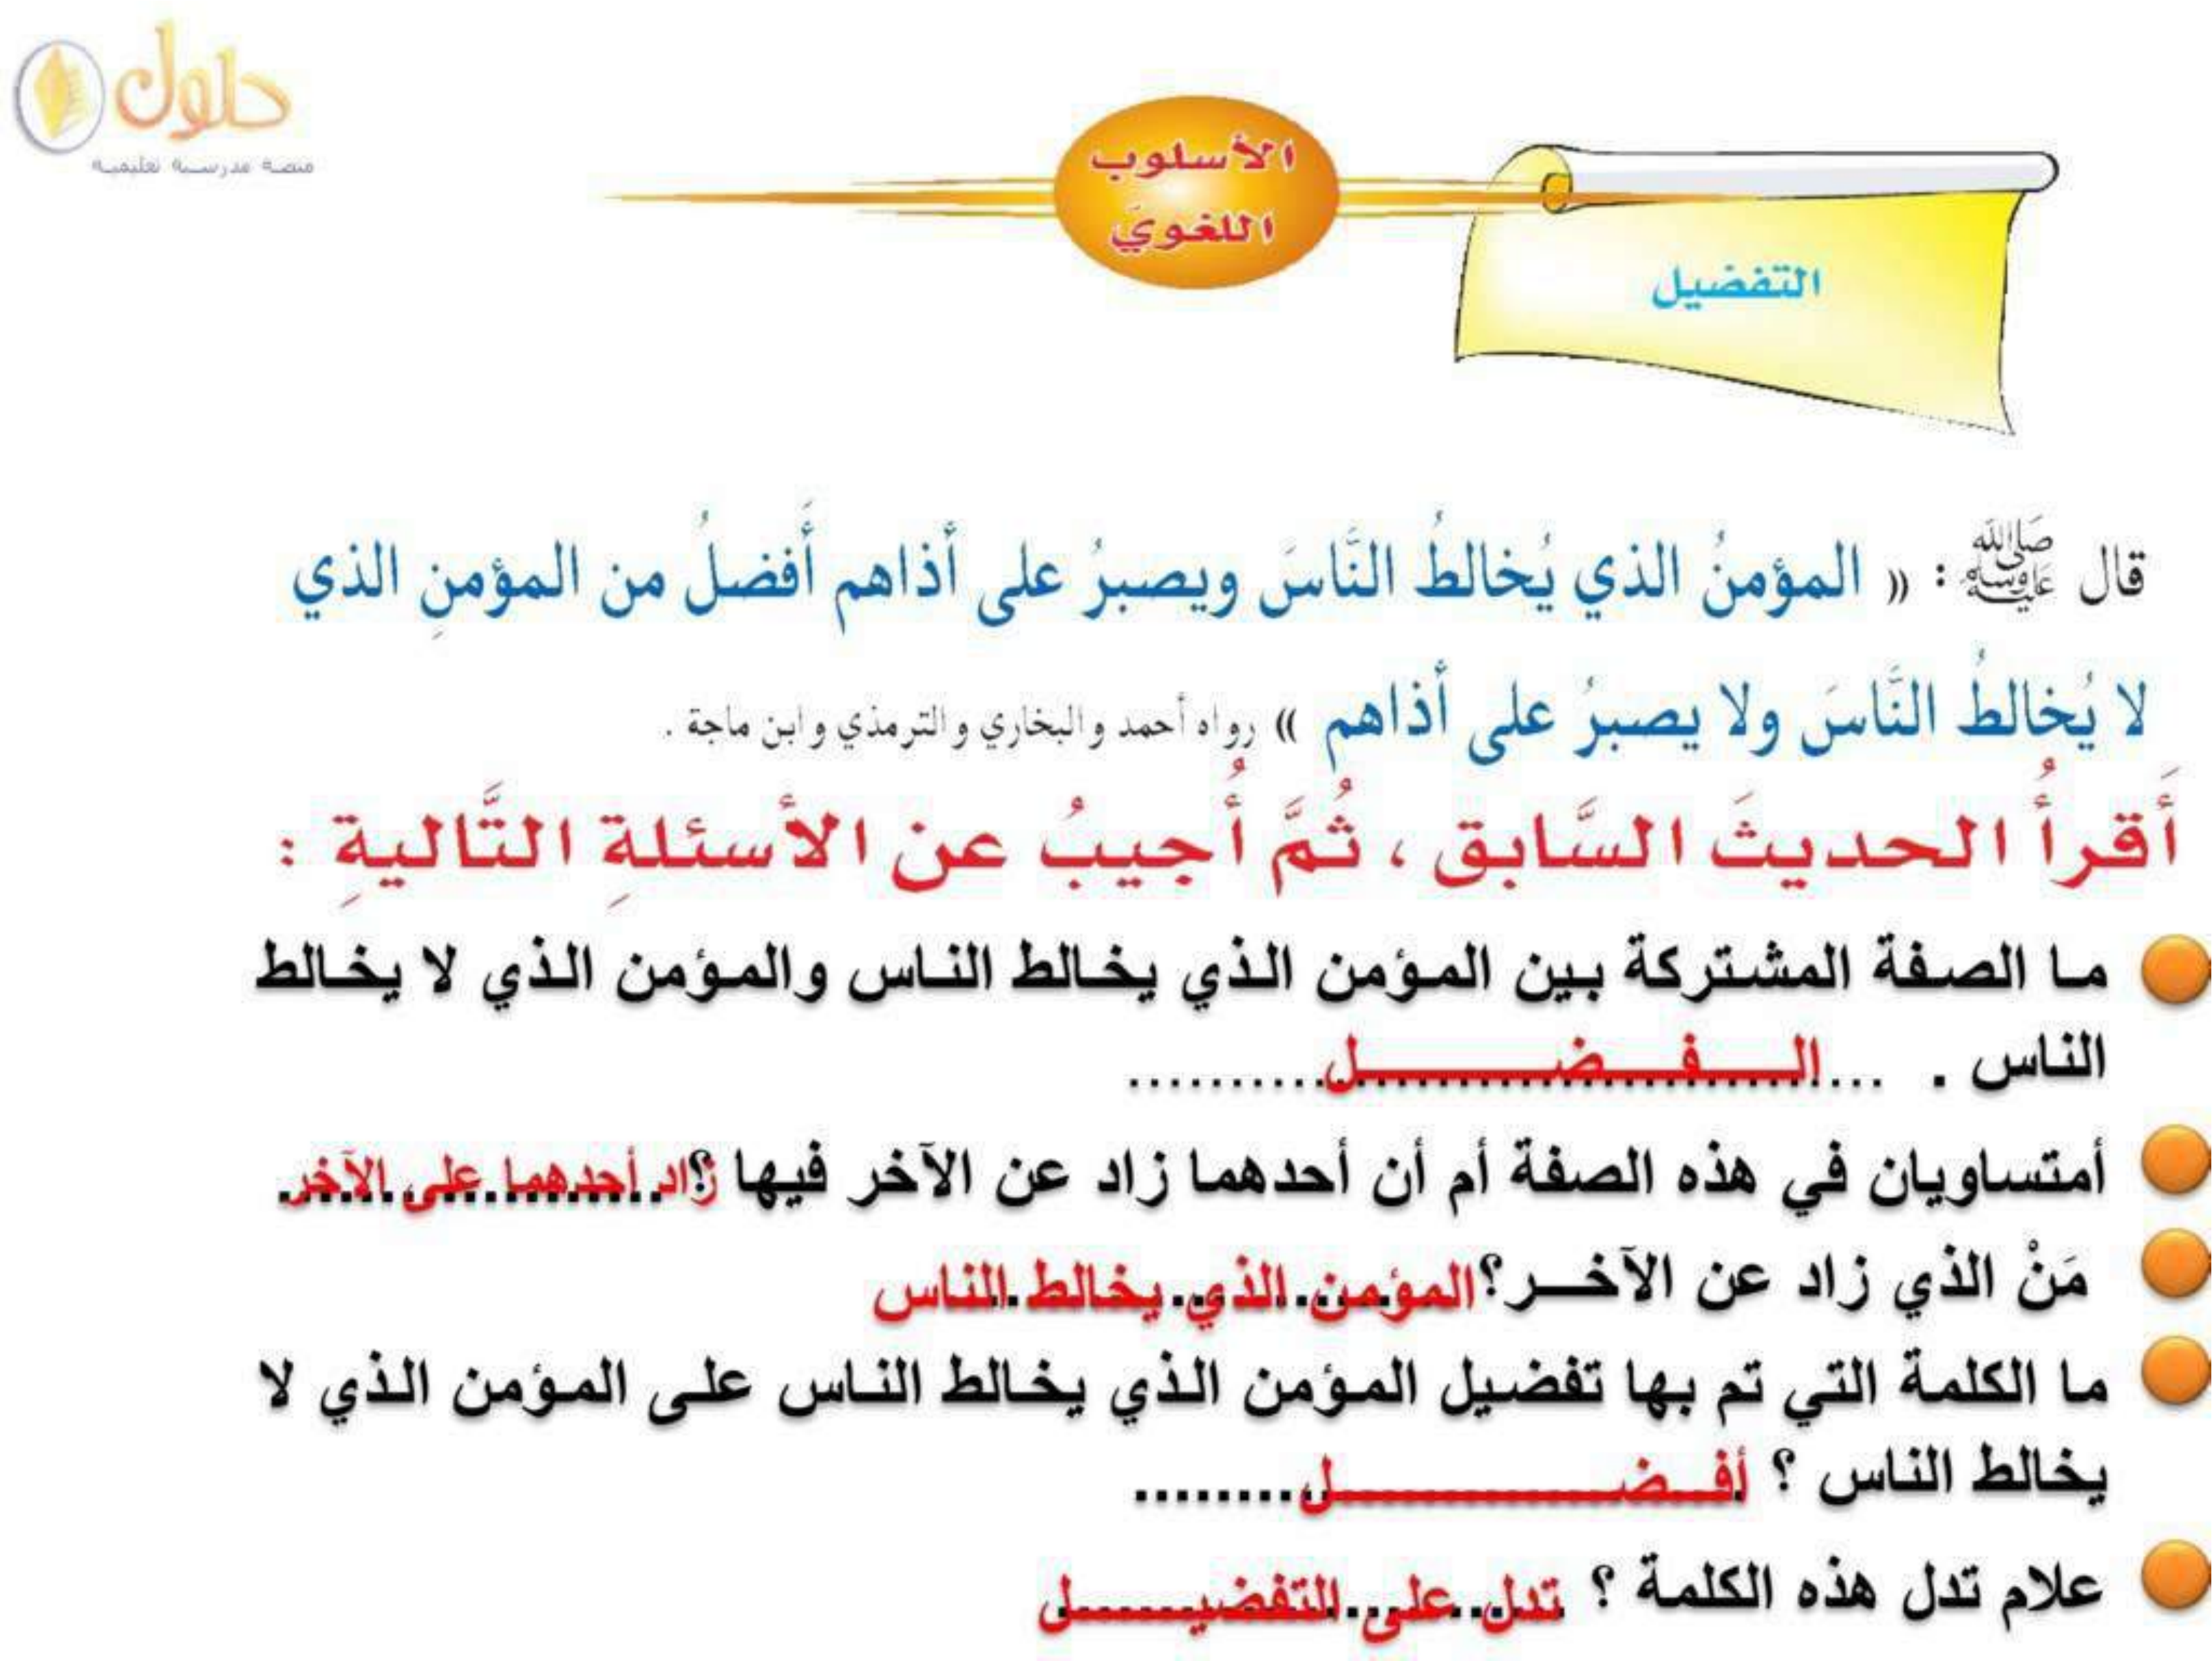 حلول
منصة مدرسية تعليمية
الأسلوب
اللغويّ
التفضيل
قال ﷺ : « المؤمنُ الذي يُخالطُ النَّاسَ ويصبرُ على أذاهم أَفضلُ من المؤمنِ الذي
لا يُخالطُ النَّاسَ ولا يصبرُ على أذاهم » رواه أحمد والبخاري والترمذي وابن ماجة .
أَقرأُ الحديثَ السَّابق ، ثُمَّ أُجيبُ عن الأسئلةِ التَّاليةِ :
ما الصفة المشتركة بين المؤمن الذي يخالط الناس والمؤمن الذي لا يخالط
الناس . ... الـــفـــضـــــل ..........
أمتساويان في هذه الصفة أم أن أحدهما زاد عن الآخر فيها ؟ زاد أحدهما على الآخر
مَنْ الذي زاد عن الآخــر؟ المؤمن الذي يخالط الناس
ما الكلمة التي تم بها تفضيل المؤمن الذي يخالط الناس على المؤمن الذي لا
يخالط الناس ؟ أفــضــــــــل ........
علام تدل هذه الكلمة ؟ تدل على التفضيـــــل